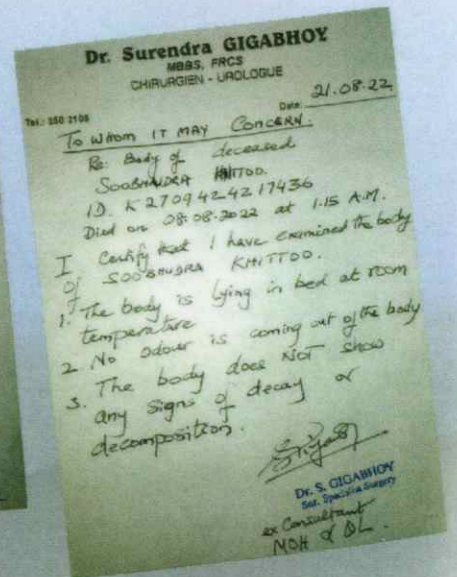 Dr. Surendra GIGABHOY
MBBS, FRCS
CHIRURGIEN - UROLOGUE
Tel.: 250 2108
Date: 21.08.22
To Whom IT MAY CONCERN.
Re: Body of deceased
SOOBHUDRA KHITTOO.
I.D. K2709424217436
Died on 08.08.2022 at 1.15 A.M.
I Certify that I have examined the body
of SOOBHUDRA KHITTOO.
1. The body is lying in bed at room
temperature
2. No odour is coming out of the body
3. The body does NOT show
any signs of decay or
decomposition.
Dr. S. GIGABHOY
Snr. Specialist Surgery
ex Consultant
MOH &